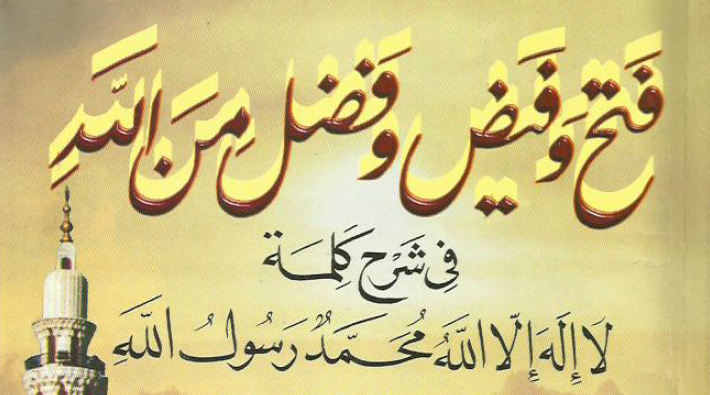 فَتْح وَفَيْض وَفَضْل مِنَ اللَّهِ
فِي شَرْح كَلِمَة
لَا إِلَهَ إِلَّا اللَّهُ مُحَمَّدٌ رَسُولُ اللَّهِ